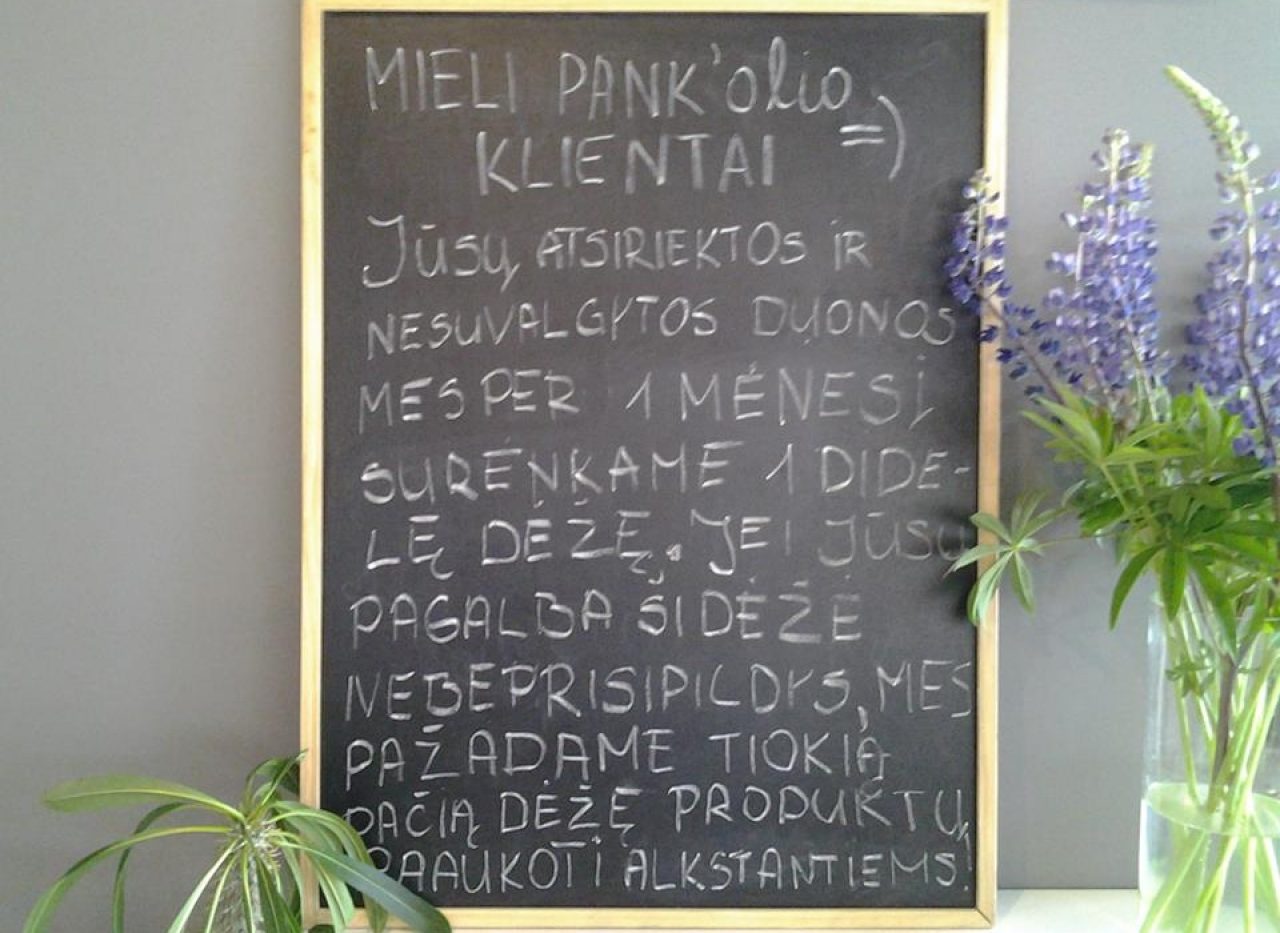 MIELI PANK'olio
KLIENTAI =)
JŪSŲ ATSIRIEKTOS IR
NESUVALGYTOS DUONOS
MES PER 1 MĖNESĮ
SURENKAME 1 DIDE-
LĘ DĖŽĘ. JEI JŪSŲ
PAGALBA ŠI DĖŽĖ
NEBEPRISIPILDYS, MES
PAŽADAME TIOKIĄ
PAČIĄ DĖŽĘ PRODUKTŲ
PAAUKOTI ALKSTANTIEMS!